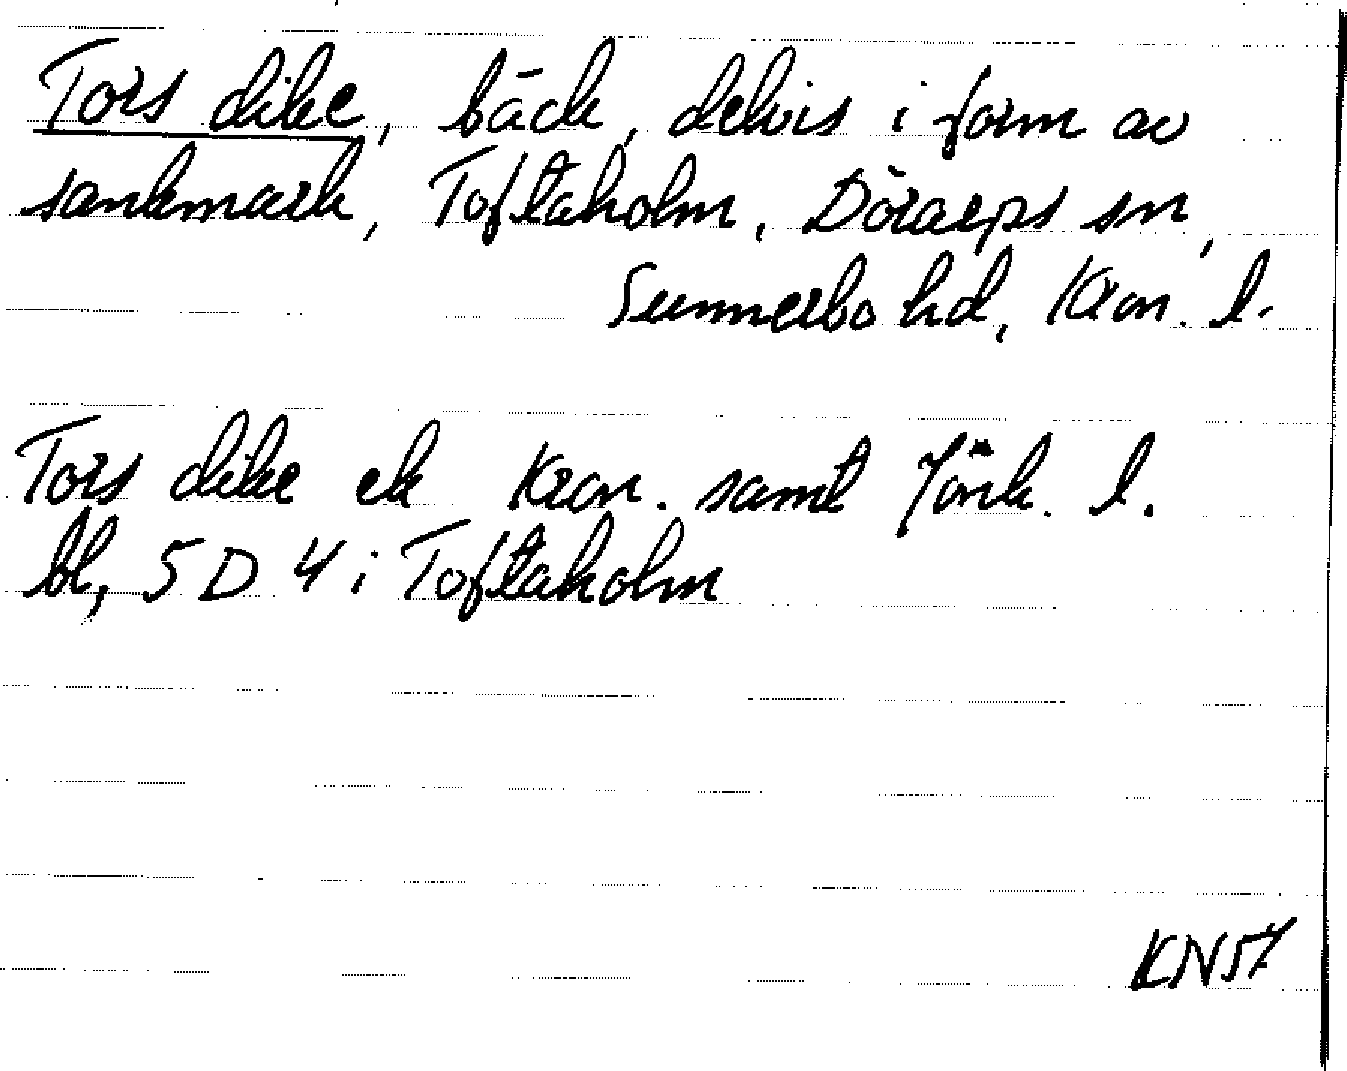 Tors dike, bäck, delvis i form av
sankmark, Toftaholm, Dörarps sn,
Sunnerbo hd, Kron. l.
Tors dike ek Kron. samt Jönk. l.
bl, 5 D 4 i Toftaholm
KN57